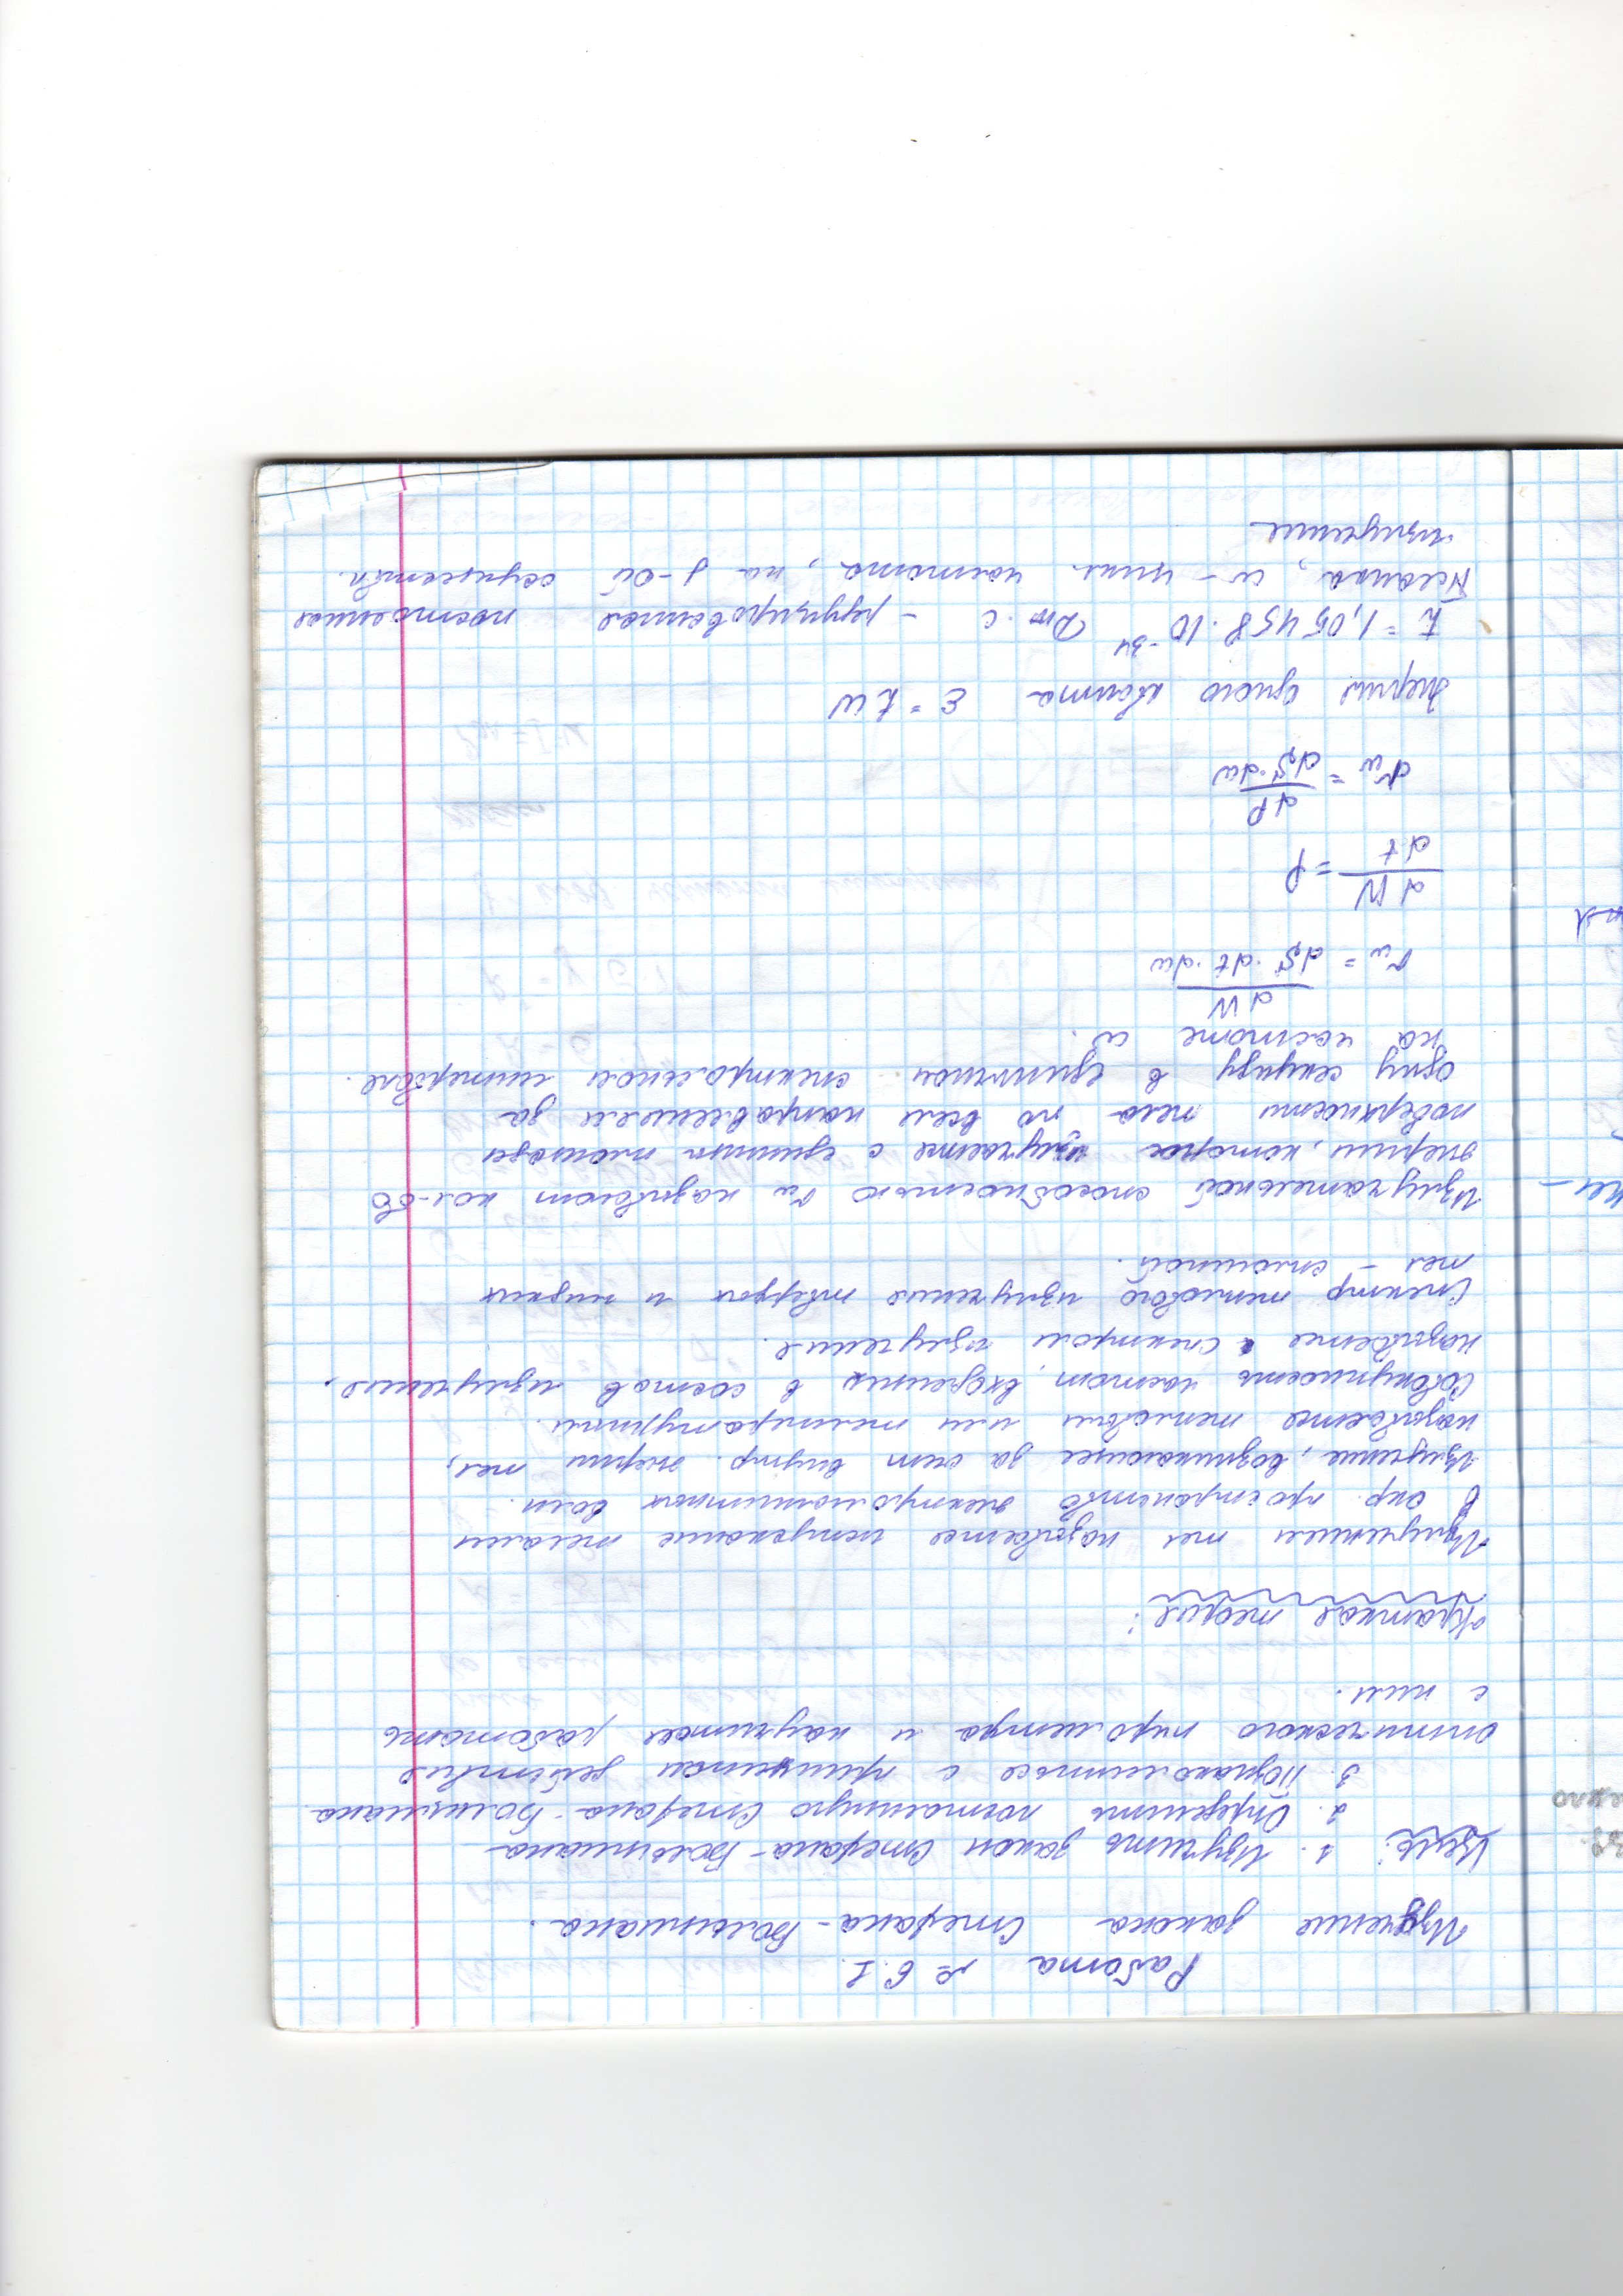 Работа № 6.1.
Изучение закона Стефана-Больцмана.
Цель: 1. Изучить закон Стефана-Больцмана
2. Определить постоянную Стефана-Больцмана.
3. Познакомиться с принципом действия
оптического пирометра и научится работать
с ним.
Краткая теория:
Излучением тел называется испускание телами
в окр. пространство электромагнитных волн.
Излучение, возникающее за счет внутр. энергии тел,
называется тепловым или температурным.
Совокупность частот, входящих в состав излучения,
называется спектром излучения.
Спектр теплового излучения твердых и жидких
тел - сплошной.
Излучательной способностью rω называют кол-во
энергии, которое излучается с единицы площади
поверхности тела по всем направлениям за
одну секунду в единичном спектральном интервале.
на частоте ω.
rω = dW / (dS · dt · dω)
dW / dt = P
rω = dP / (dS · dω)
Энергия одного кванта ε = ħω
ħ = 1,05458 · 10⁻³⁴ Дж · с - редуцированная постоянная
Планка, ω - цикл. частота, на γ-ой осуществл.
излучение